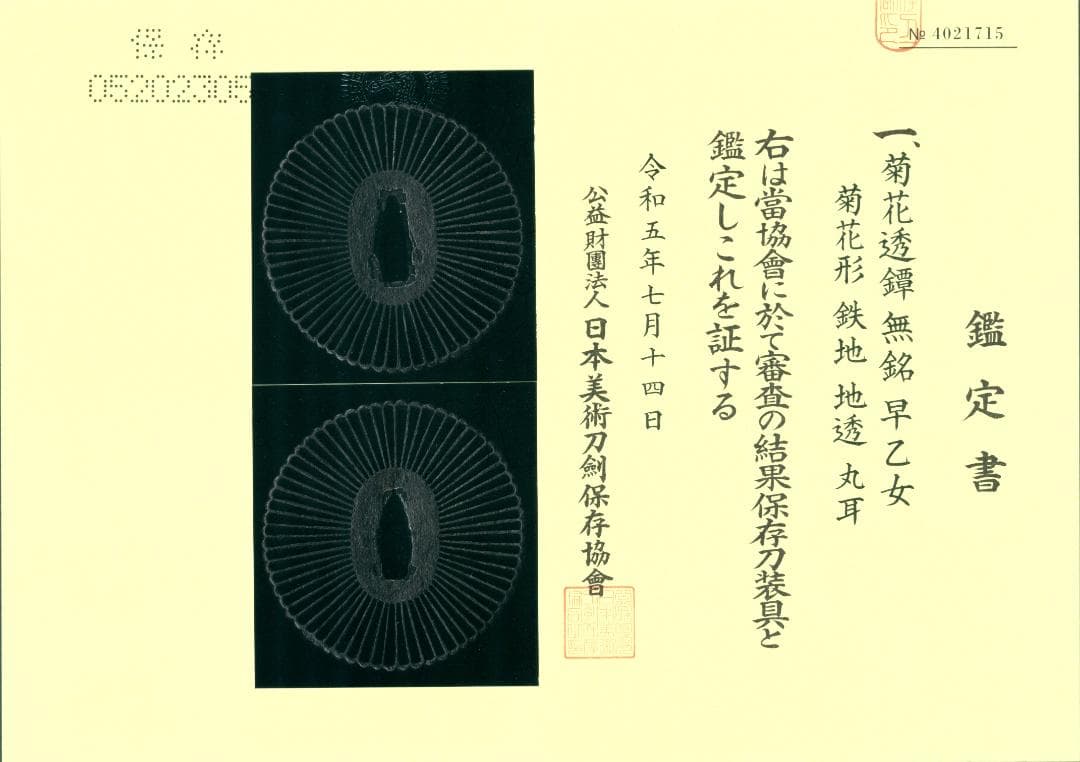 № 4021715
保存
05202305
鑑定書
一、菊花透鐔 無銘 早乙女
菊花形 鉄地 地透 丸耳
右は當協會に於て審査の結果保存刀装具と
鑑定しこれを証する
令和五年七月十四日
公益財團法人 日本美術刀劍保存協會